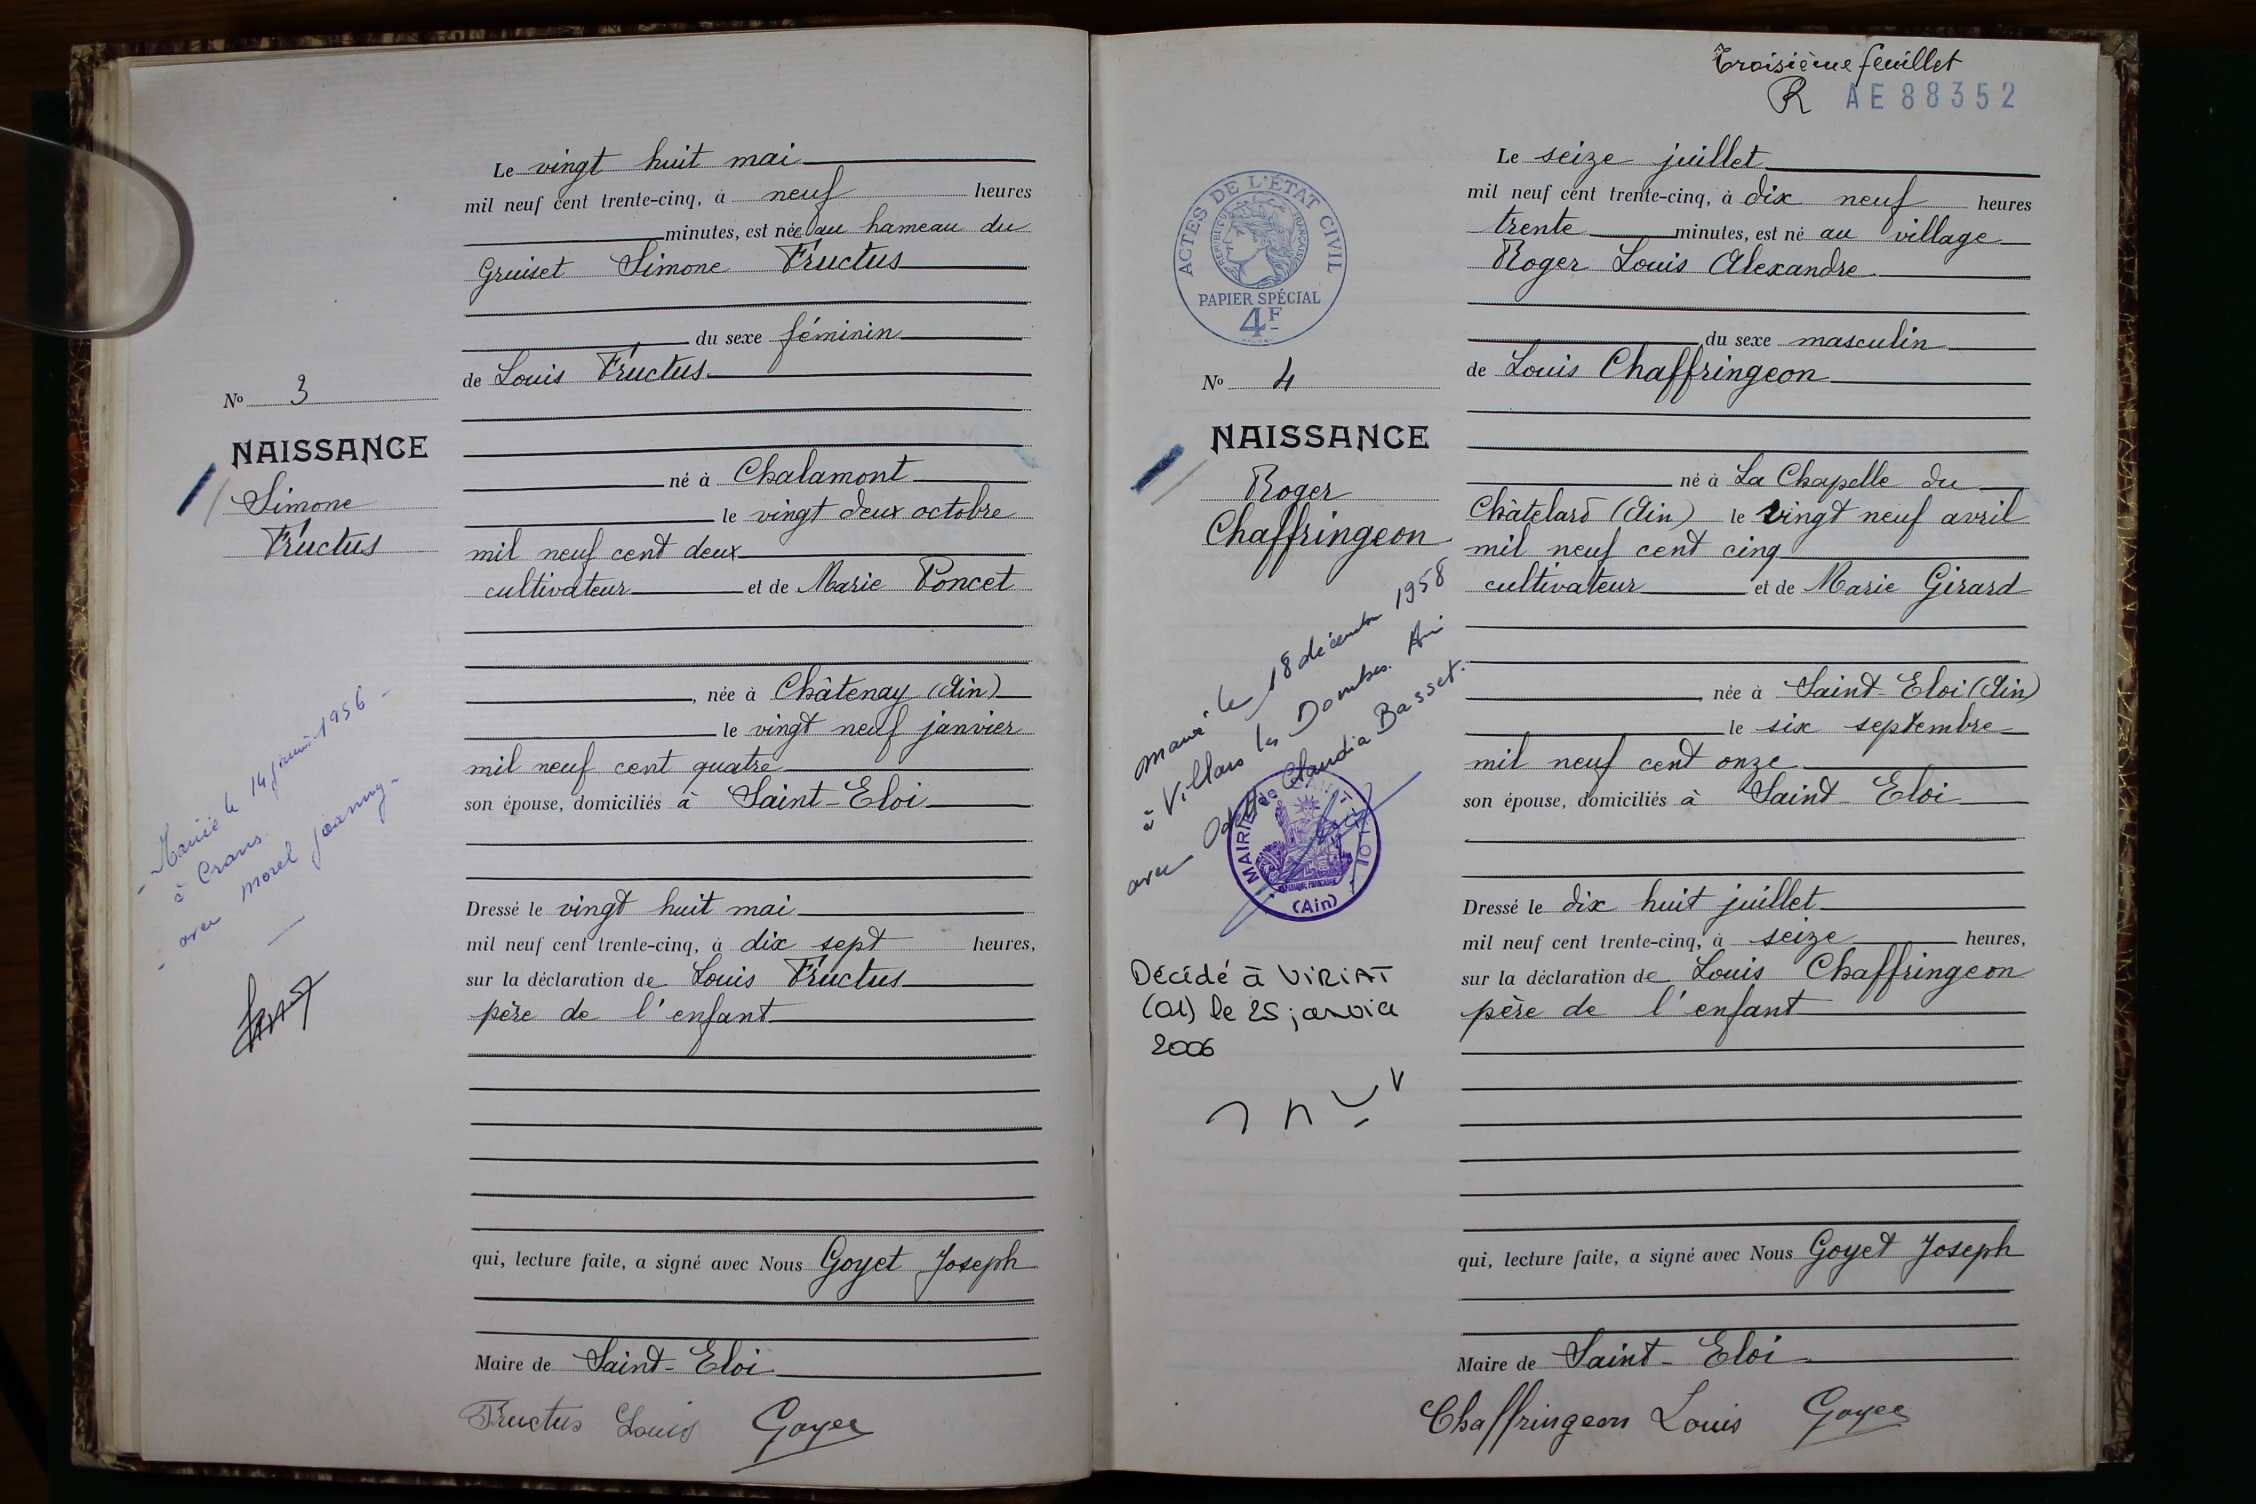 Le vingt huit mai
mil neuf cent trente-cinq, à neuf heures
minutes, est née au hameau du
Gruiset Simone Fructus
du sexe féminin
de Louis Fructus
né à Chalamont
le vingt deux octobre
mil neuf cent deux
cultivateur et de Marie Poncet
, née à Châtenay (Ain)
le vingt neuf janvier
mil neuf cent quatre
son épouse, domiciliés à Saint-Eloi
Dressé le vingt huit mai
mil neuf cent trente-cinq, à dix sept heures,
sur la déclaration de Louis Fructus
père de l'enfant
qui, lecture faite, a signé avec Nous Goyet Joseph
Maire de Saint-Eloi
Fructus Louis Goyet
No 3
NAISSANCE
Simone
Fructus
- Mariée le 14 1956 -
à Crans
- avec Morel Joanny -
Troisième feuillet
R AE 88352
Le seize juillet
mil neuf cent trente-cinq, à dix neuf heures
trente minutes, est né au village
Roger Louis Alexandre
du sexe masculin
de Louis Chaffringeon
né à La Chapelle du
Châtelard (Ain) le vingt neuf avril
mil neuf cent cinq
cultivateur et de Marie Girard
née à Saint-Eloi (Ain)
le six septembre
mil neuf cent onze
son épouse, domiciliés à Saint-Eloi
Dressé le dix huit juillet
mil neuf cent trente-cinq, à seize heures,
sur la déclaration de Louis Chaffringeon
père de l'enfant
qui, lecture faite, a signé avec Nous Goyet Joseph
Maire de Saint-Eloi
Chaffringeon Louis Goyet
ACTES DE L'ÉTAT CIVIL
RÉPUBLIQUE FRANÇAISE
PAPIER SPÉCIAL
4F
No 4
NAISSANCE
Roger
Chaffringeon
marié le 18 décembre 1958
à Villars les Dombes. Ain
avec Odette Claudia Basset.
MAIRIE de
RÉPUBLIQUE FRANÇAISE
(Ain)
Décédé à VIRIAT
(01) le 25 janvier
2006